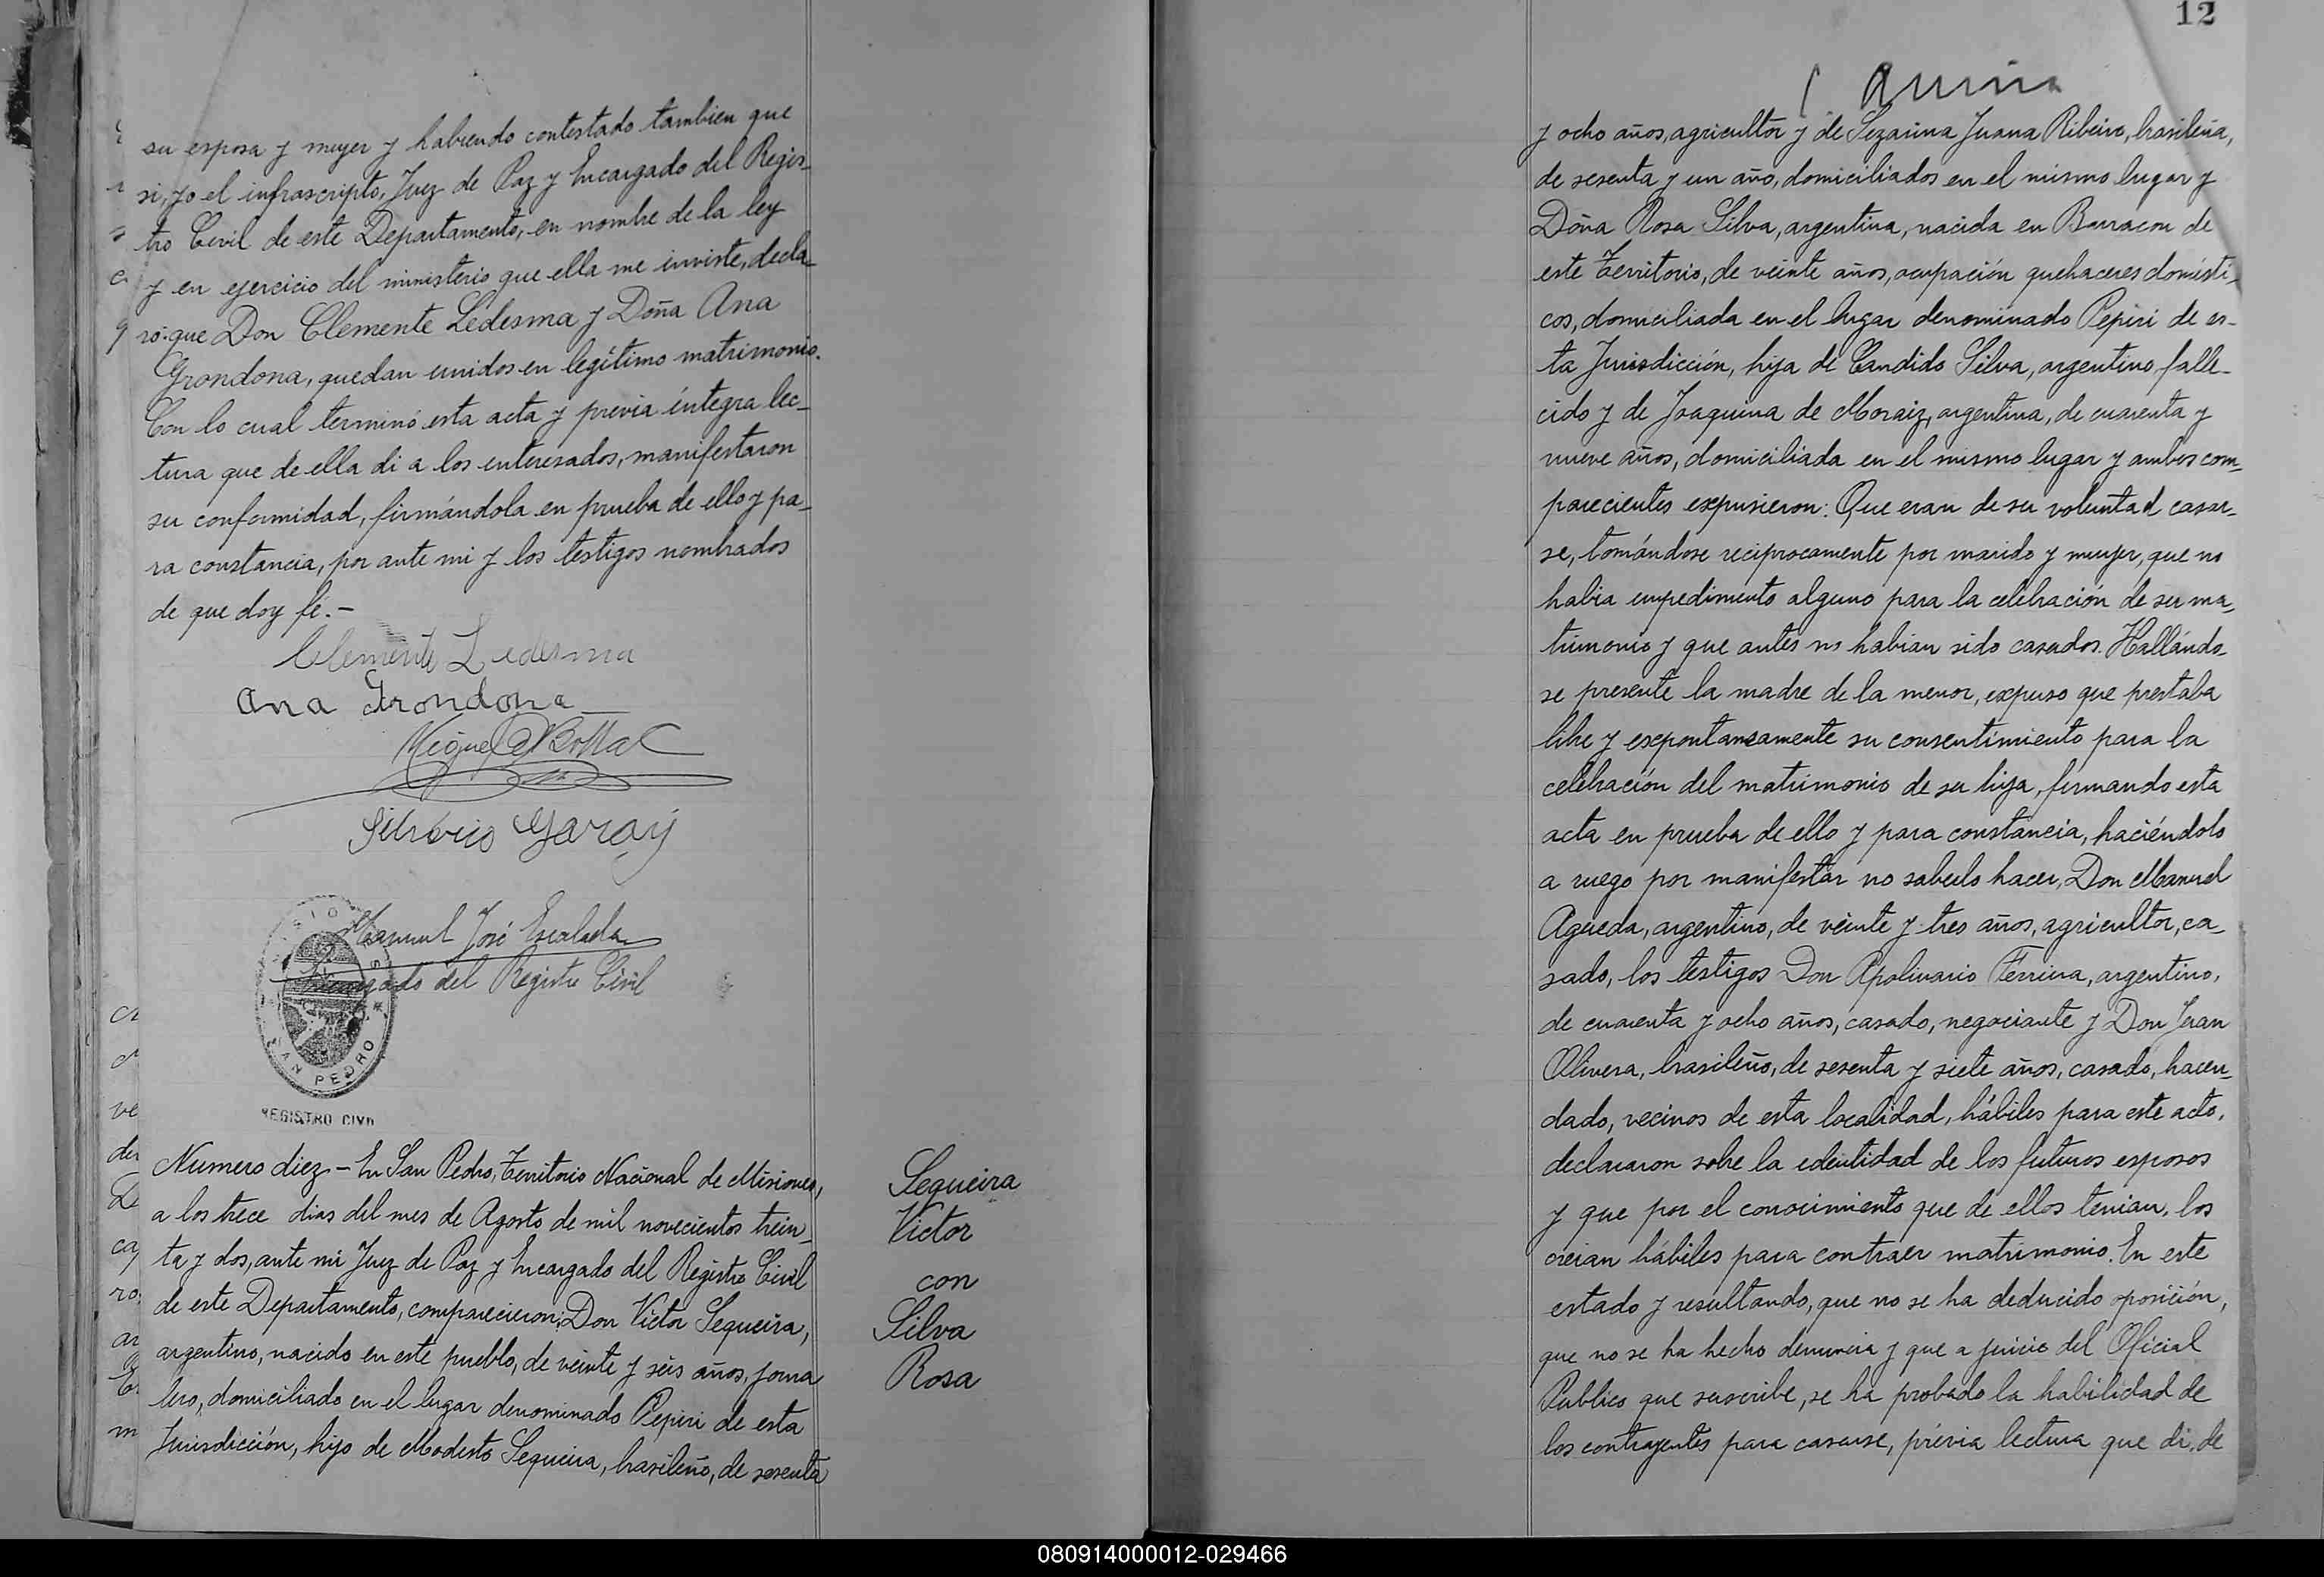 su esposa y mujer y habiendo contestado tambien que
si, yo el infrascripto, Juez de Paz y Encargado del Regis-
tro Civil de este Departamento, en nombre de la ley
y en ejercicio del ministerio que ella me inviste, decla-
ró: que Don Clemente Ledesma y Doña Ana
Grondona, quedan unidos en legítimo matrimonio.
Con lo cual terminó esta acta y previa íntegra lec-
tura que de ella di a los interesados, manifestaron
su conformidad, firmándola en prueba de ello y pa-
ra constancia, por ante mi y los testigos nombrados
de que doy fé.-
Clemente Ledesma
Ana Grondona
Miguel
Silverio Garay
Manuel José Escalada
Encargado del Registro Civil
MISIONES
SAN PEDRO
REGISTRO CIVIL
Numero diez - En San Pedro, Territorio Nacional de Misiones,
a los trece dias del mes de Agosto de mil novecientos trein-
ta y dos, ante mi Juez de Paz y Encargado del Registro Civil
de este Departamento, comparecieron: Don Victor Sequeira,
argentino, nacido en este pueblo, de veinte y seis años, jorna
lero, domiciliado en el lugar denominado Pepiri de esta
Jurisdicción, hijo de Modesto Sequeira, brasileño, de sesenta
Sequeira
Victor
con
Silva
Rosa
12
y ocho años, agricultor y de Sezarina Juana Ribeiro, brasileña,
de sesenta y un año, domiciliados en el mismo lugar y
Doña Rosa Silva, argentina, nacida en Barracon de
este Territorio, de veinte años, ocupación quehaceres domésti-
cos, domiciliada en el lugar denominado Pepiri de es-
ta Jurisdicción, hija de Candido Silva, argentino, falle-
cido y de Joaquina de Moraiz, argentina, de cuarenta y
nueve años, domiciliada en el mismo lugar y ambos com-
parecientes expusieron: Que eran de su voluntad casar-
se, tomándose reciprocamente por marido y mujer, que no
habia empedimento alguno para la celebración de su ma-
trimonio y que antes no habian sido casados. Hallándo-
se presente la madre de la menor, expuso que prestaba
libre y esepontaneamente su consentimiento para la
celebración del matrimonio de su hija, firmando esta
acta en prueba de ello y para constancia, haciéndolo
a ruego por manifestar no saberlo hacer, Don Manuel
Agueda, argentino, de veinte y tres años, agricultor, ca-
sado, los testigos Don Apolinario Ferrira, argentino,
de cuarenta y ocho años, casado, negociante y Don Juan
Olivera, brasileño, de sesenta y siete años, casado, hacen-
dado, vecinos de esta localidad, hábiles para este acto,
declararon sobre la edentidad de los futuros esposos
y que por el conocimiento que de ellos tenian, los
creian hábiles para contraer matrimonio. En este
estado y resultando, que no se ha deducido oposición,
que no se ha hecho denuncia y que a juicio del Oficial
Publico que suscribe, se ha probado la habilidad de
los contrayentes para casarse, prévia lectura que di, de
080914000012-029466